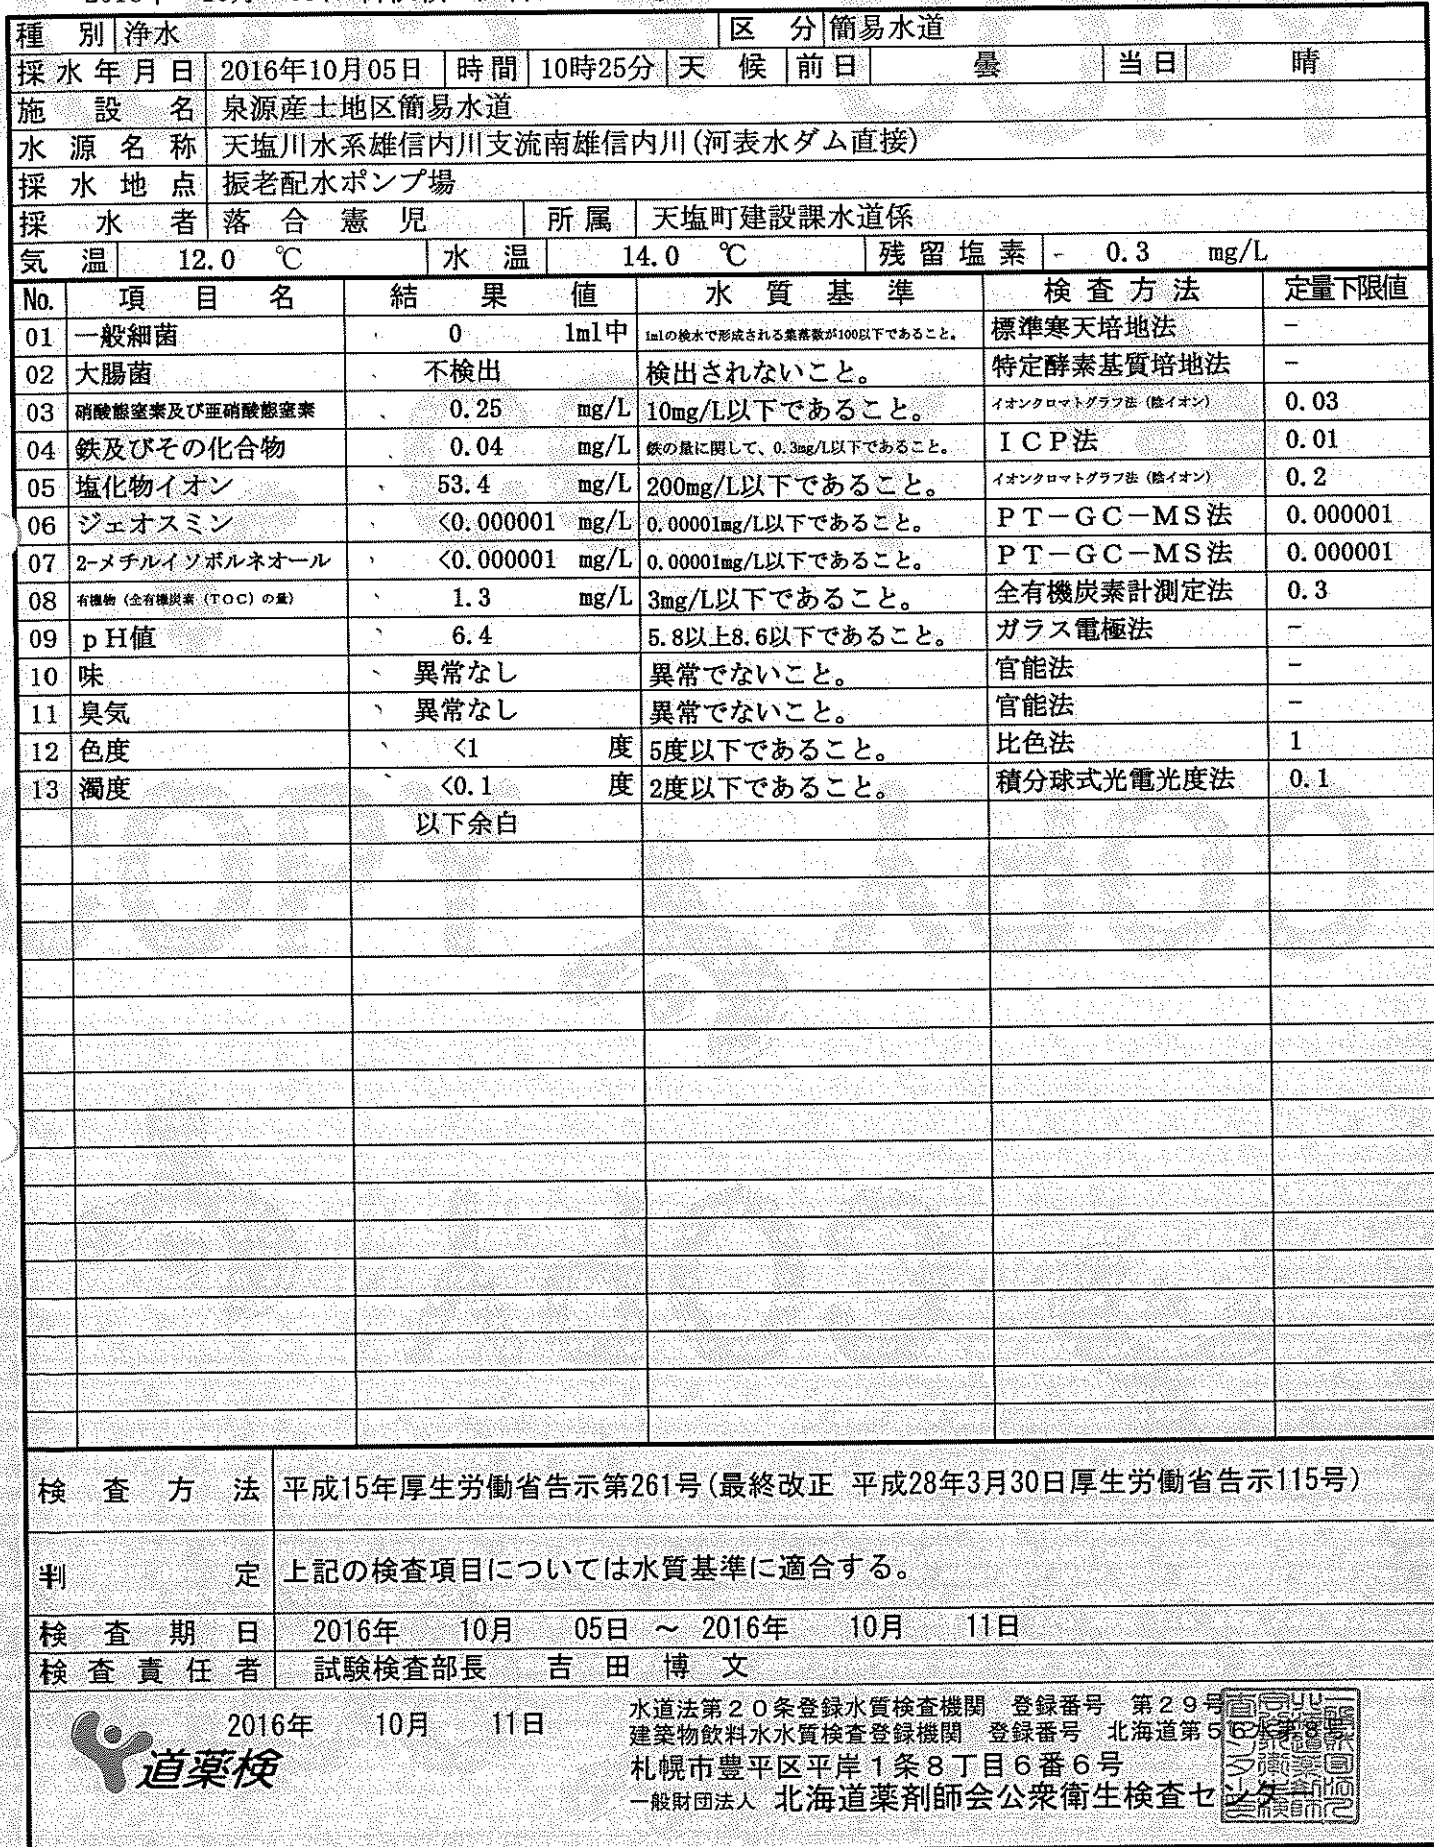 種別 浄水 区分 簡易水道
採水年月日 2016年10月05日 時間 10時25分 天候 前日 曇 当日 晴
施設名 泉源産士地区簡易水道
水源名称 天塩川水系雄信内川支流南雄信内川(河表水ダム直接)
採水地点 振老配水ポンプ場
採水者 落合憲児 所属 天塩町建設課水道係
気温 12.0 ℃ 水温 14.0 ℃ 残留塩素 - 0.3 mg/L
No. 項目名 結果値 水質基準 検査方法 定量下限値
01 一般細菌 0 1ml中 1mlの検水で形成される集落数が100以下であること。 標準寒天培地法 −
02 大腸菌 不検出 検出されないこと。 特定酵素基質培地法 −
03 硝酸態窒素及び亜硝酸態窒素 0.25 mg/L 10mg/L以下であること。 イオンクロマトグラフ法(陰イオン) 0.03
04 鉄及びその化合物 0.04 mg/L 鉄の量に関して、0.3mg/L以下であること。 ICP法 0.01
05 塩化物イオン 53.4 mg/L 200mg/L以下であること。 イオンクロマトグラフ法(陰イオン) 0.2
06 ジェオスミン <0.000001 mg/L 0.00001mg/L以下であること。 PT−GC−MS法 0.000001
07 2-メチルイソボルネオール <0.000001 mg/L 0.00001mg/L以下であること。 PT−GC−MS法 0.000001
08 有機物(全有機炭素(TOC)の量) 1.3 mg/L 3mg/L以下であること。 全有機炭素計測定法 0.3
09 pH値 6.4 5.8以上8.6以下であること。 ガラス電極法 −
10 味 異常なし 異常でないこと。 官能法 −
11 臭気 異常なし 異常でないこと。 官能法 −
12 色度 <1 度 5度以下であること。 比色法 1
13 濁度 <0.1 度 2度以下であること。 積分球式光電光度法 0.1
以下余白
検査方法 平成15年厚生労働省告示第261号(最終改正 平成28年3月30日厚生労働省告示115号)
判定 上記の検査項目については水質基準に適合する。
検査期日 2016年 10月 05日 ～ 2016年 10月 11日
検査責任者 試験検査部長 吉田博文
水道法第20条登録水質検査機関 登録番号 第29号
2016年 10月 11日
建築物飲料水水質検査登録機関 登録番号 北海道第56水第8号
道薬検
札幌市豊平区平岸1条8丁目6番6号
一般財団法人 北海道薬剤師会公衆衛生検査センター